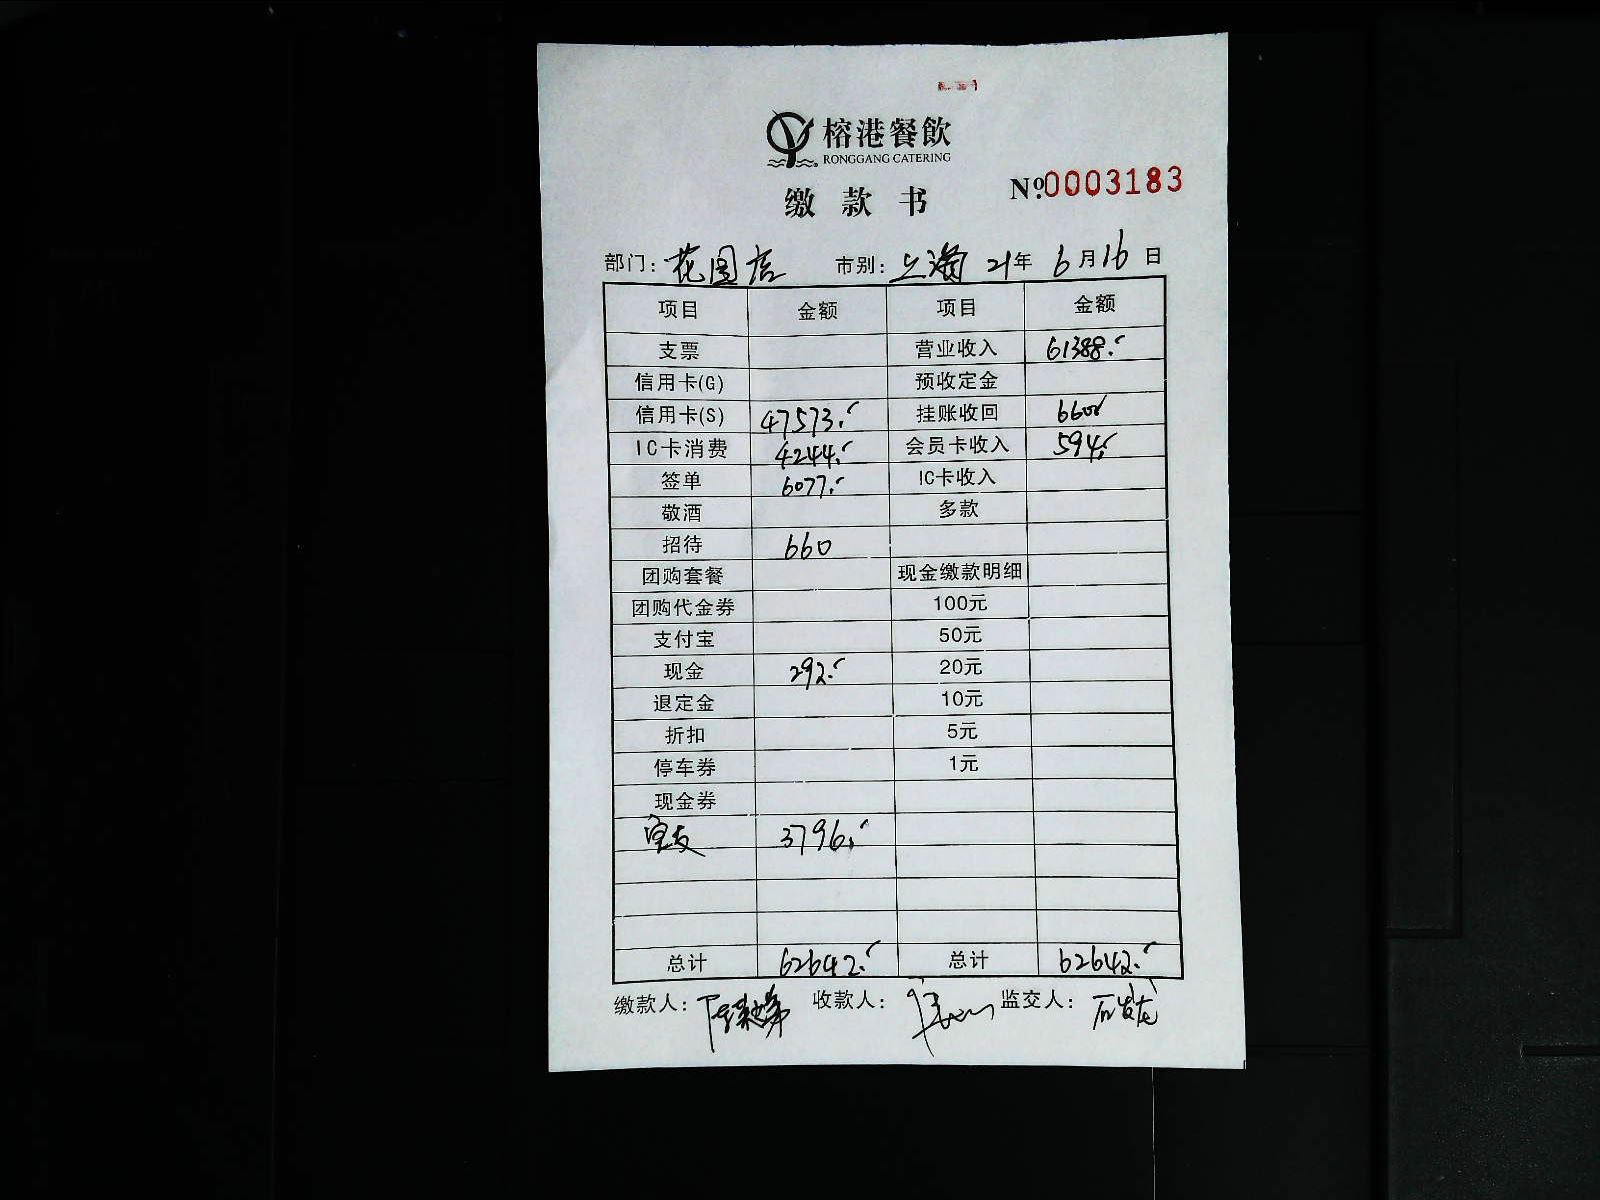 榕港餐飲
RONGGANG CATERING
缴款书
Nº.0003183
部门: 花园店 市别: 上海 21年 6月16日
项目 金额 项目 金额
支票 营业收入 61388.-
信用卡(G) 预收定金
信用卡(S) 47573.- 挂账收回 660.-
IC卡消费 4244.- 会员卡收入 594.-
签单 6077.- IC卡收入
敬酒 多款
招待 660
团购套餐 现金缴款明细
团购代金券 100元
支付宝 50元
现金 292.- 20元
退定金 10元
折扣 5元
停车券 1元
现金券
3796.-
总计 62642.- 总计 62642.-
缴款人: 收款人: 监交人: